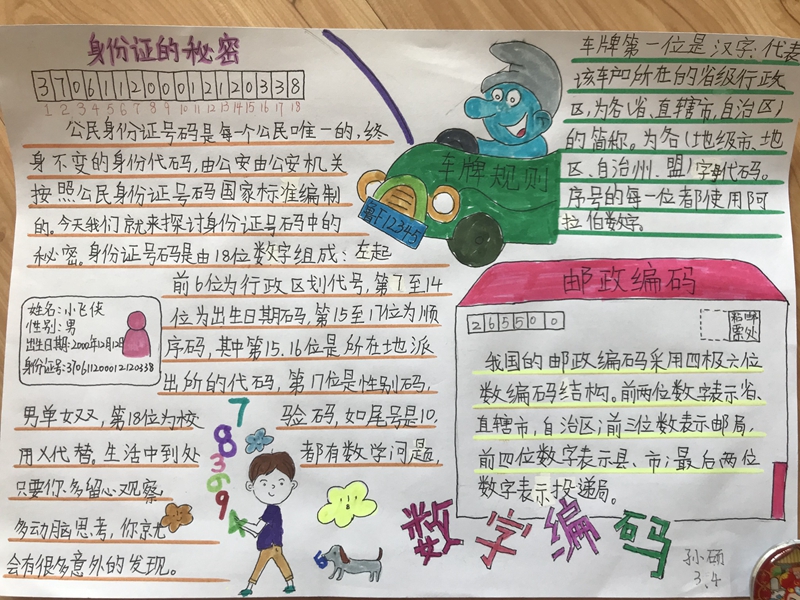 身份证的秘密
370611200012120338
1 2 3 4 5 6 7 8 9 10 11 12 13 14 15 16 17 18
公民身份证号码是每个公民唯一的,终
身不变的身份代码,由公安由公安机关
按照公民身份证号码国家标准编制
的。今天我们就来探讨身份证号码中的
秘密。身份证号码是由18位数字组成:左起
前6位为行政区划代号,第7至14
位为出生日期码,第15至17位为顺
序码,其中第15.16位是所在地派
出所的代码,第17位是性别码,
男单女双,第18位为校验码,如尾号是10,
用X代替。生活中到处都有数学问题,
只要你多留心观察,
多动脑思考,你就
会有很多意外的发现。
姓名:小飞侠
性别:男
出生日期:2000年12月12日
身份证号:370611200012120338
7
8
3
6
9
4
6
车牌规则
鲁F12345
车牌第一位是汉字:代表
该车户所在的省级行政
区,为各(省、直辖市、自治区)
的简称。为各(地级市、地
区、自治州、盟)字母代码。
序号的每一位都使用阿
拉伯数字。
邮政编码
265500
粘邮票处
我国的邮政编码采用四极六位
数编码结构。前两位数字表示省、
直辖市,自治区;前三位数表示邮局,
前四位数字表示县、市;最后两位
数字表示投递局。
数字编码
孙硕
3.4